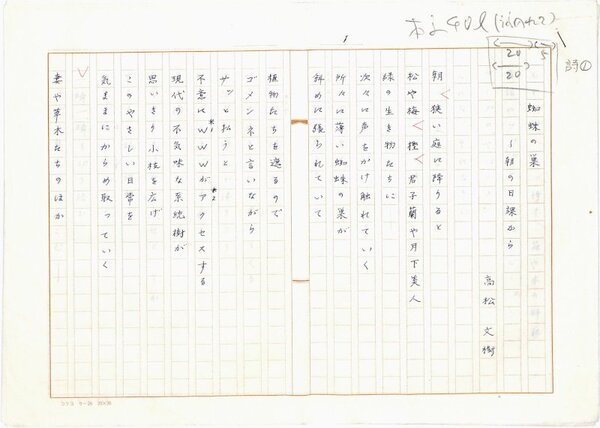 詩①
20 5
20
蜘蛛の巣
～朝の日課から
高松文樹
朝 狭い庭に降りると
松や梅 樫 君子蘭や月下美人
緑の生き物たちに
次々に声をかけ触れていく
所々に薄い蜘蛛の巣が
斜めに張られていて
植物たちを遮るので
ゴメンネと言いながら
サッと払うと
不意にWWWがアクセスする
*1
*2
現代の不気味な系統樹が
思いきり小枝を広げ
このやさしい日常を
気ままにからめ取っていく
妻や草木たちのほか
コクヨ ケ-35 20×20